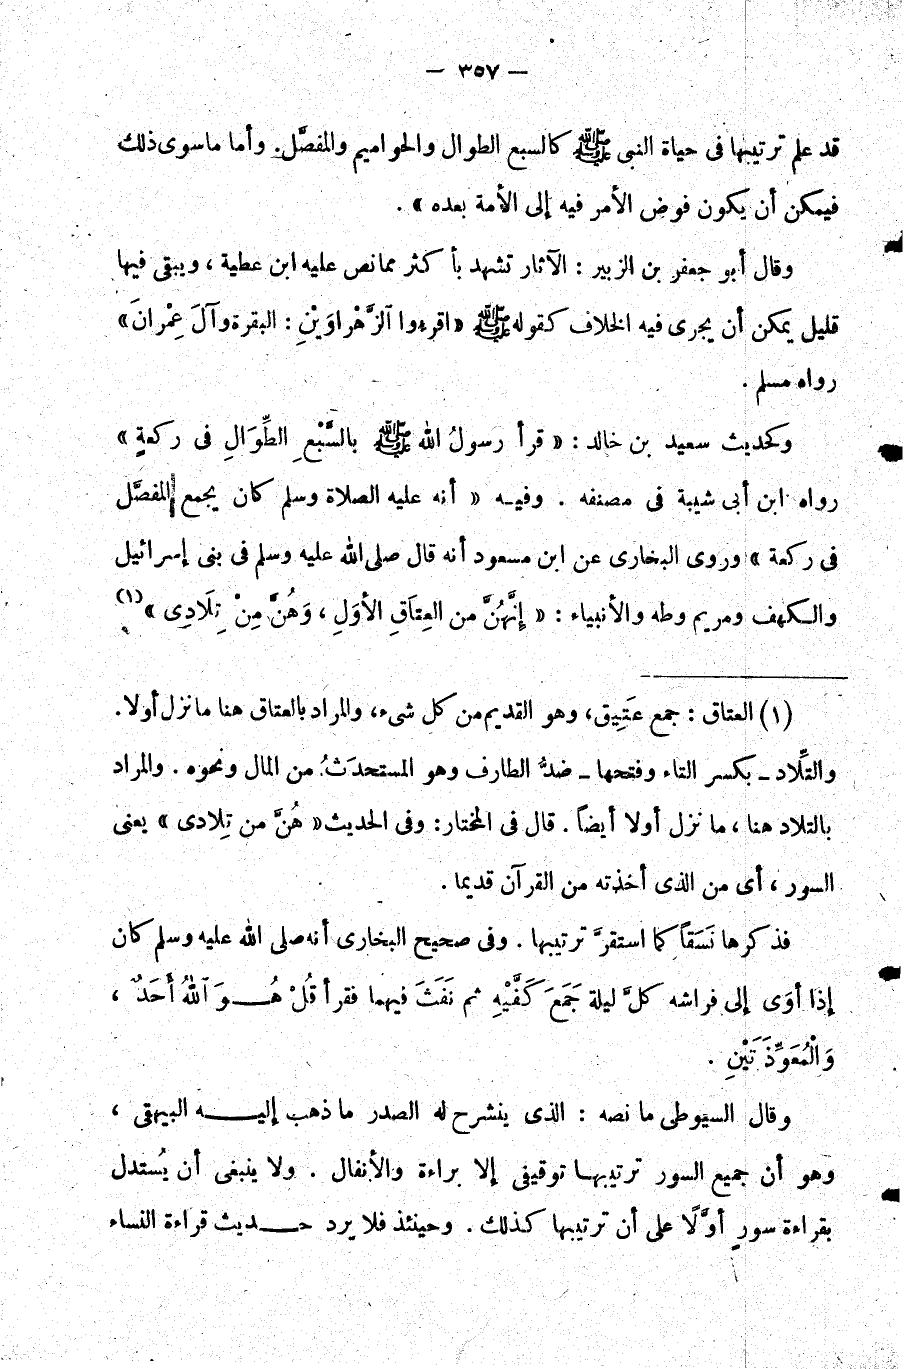 — ٣٥٧ —
قد علم ترتيبها فى حياة النبى ﷺ كالسبع الطوال والحواميم والمفصَّل. وأما ماسوى ذلك
فيمكن أن يكون فوض الأمر فيه إلى الأمة بعده » .
وقال أبو جعفر بن الزبير : الآثار تشهد بأ كثر ممانص عليه ابن عطية ، ويبقى فيها
قليل يمكن أن يجرى فيه الخلاف كقوله ﷺ «اقرءوا ٱلزَّهْرَاوَيْنِ : البقرة وآلَ عِمْرانَ»
رواه مسلم .
وكحديث سعيد بن خالد : « قرأ رسولُ الله ﷺ بالسَّبْعِ الطِّوَالِ فى ركعةٍ »
رواه ابن أبى شيبة فى مصنفه . وفيـه « أنه عليه الصلاة وسلم كان يجمع المفصَّل
فى ركعة » وروى البخارى عن ابن مسعود أنه قال صلى الله عليه وسلم فى بنى إسرائيل
والـكهف ومريم وطه والأنبياء : « إِنَّهُنَّ من العِتَاقِ الأوَلِ ، وَهُنَّ مِنْ تِلَادِى » (١)
(١) العتاق : جمع عَتِيق، وهو القديم من كل شىء، والمراد بالعتاق هنا ما نزل أولا.
والتِّلاد ــ بكسر التاء وفتحها ــ ضدُّ الطارف وهو المستحدَثُ من المال ونحوه . والمراد
بالتلاد هنا ، ما نزل أولا أيضاً . قال فى المختار: وفى الحديث« هُنَّ من تِلادى » يعنى
السور ، أى من الذى أخذته من القرآن قديما .
فذكرها نَسَقاً كما استقرَّ ترتيبها . وفى صحيح البخارى أنه صلى الله عليه وسلم كان
إذا أوَى إلى فراشه كلَّ ليلة جَمَعَ كَفَّيْهِ ثم نَفَثَ فيهما فقرأ قُلْ هُــوَ ٱللهُ أَحَدٌ ،
وَالْمُعَوِّذَتَيْنِ .
وقال السيوطى ما نصه : الذى ينشرح له الصدر ما ذهب إليـــه البيهقى ،
وهو أن جميع السور ترتيبهـا توقيفى إلا براءة والأنفال . ولا ينبغى أن يُستدل
بقراءة سورٍ أوَّلًا على أن ترتيبها كذلك . وحينئذ فلا يرد حــديث قراءة النساء